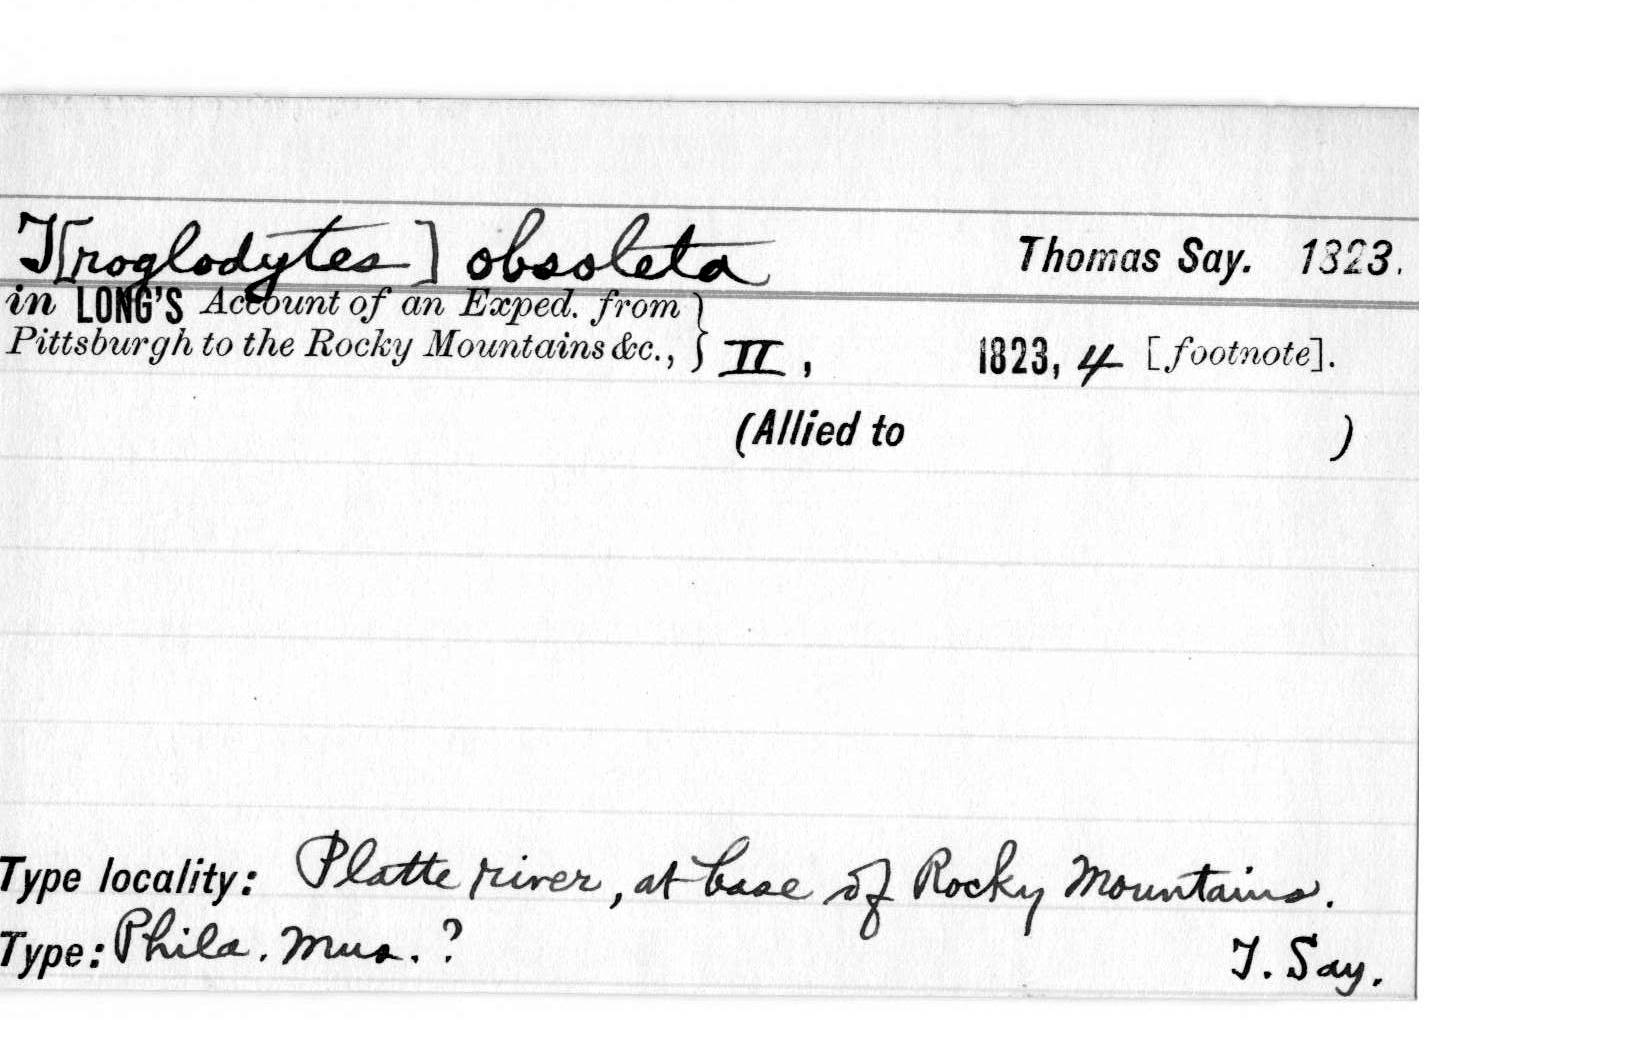 T[roglodytes] obsoleta Thomas Say. 1823.
in LONG'S Account of an Exped. from
Pittsburgh to the Rocky Mountains &c., } II, 1823, 4 [footnote].
(Allied to )
Type locality: Platte river, at base of Rocky Mountains.
Type: Phila. Mus. ? T. Say.